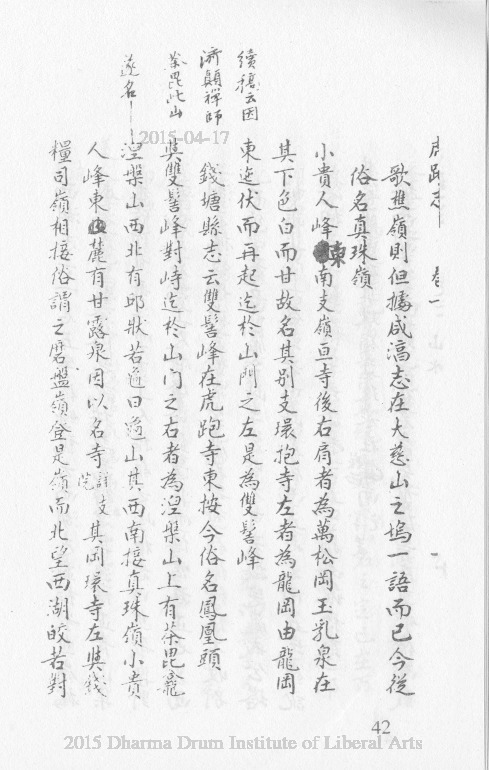 虎跑志 卷一 山水
歌樵嶺則但據咸淳志在大慈山之塢一語而已今從
俗名真珠嶺
小貴人峰東南支嶺亘寺後右肩者為萬松岡玉乳泉在
其下色白而甘故名其別支環抱寺左者為龍岡由龍岡
東迤伏而再起迄於山門之左是為雙髻峰
錢塘縣志云雙髻峰在虎跑寺東按今俗名鳳凰頭
與雙髻峰對峙迄於山門之右者為涅槃山上有茶毘龕
涅槃山西北有邱狀若 曰 山其西南接真珠嶺小貴
人峰東麓有甘露泉因以名寺詳寺院支其岡環寺左與錢
糧司嶺相接俗謂之磨盤嶺登是嶺而北望西湖皎若對
續稿云因
濟顛禪師
茶毘此山
遂名
2015-04-17
42
2015 Dharma Drum Institute of Liberal Arts